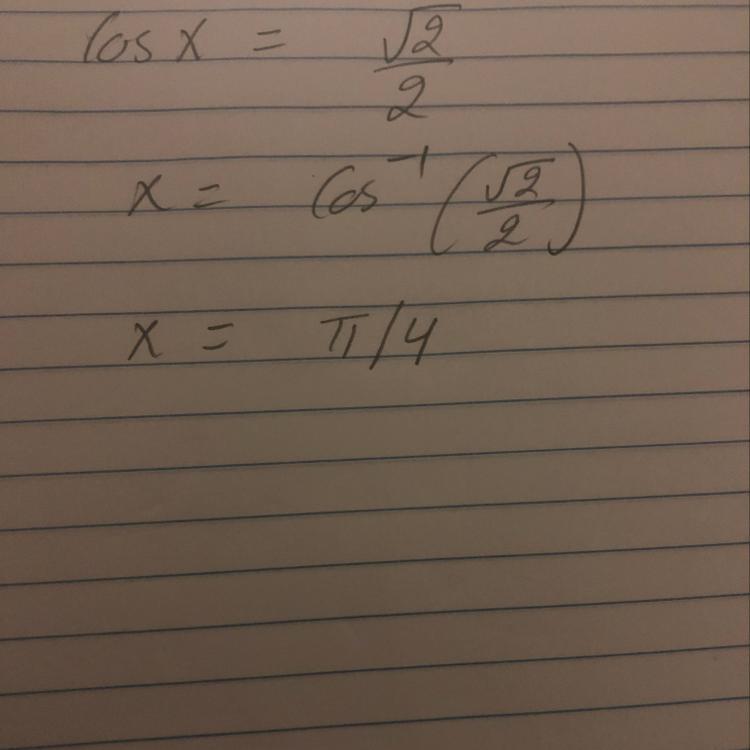 Cos x = √2/2
x = Cos⁻¹(√2/2)
x = π/4